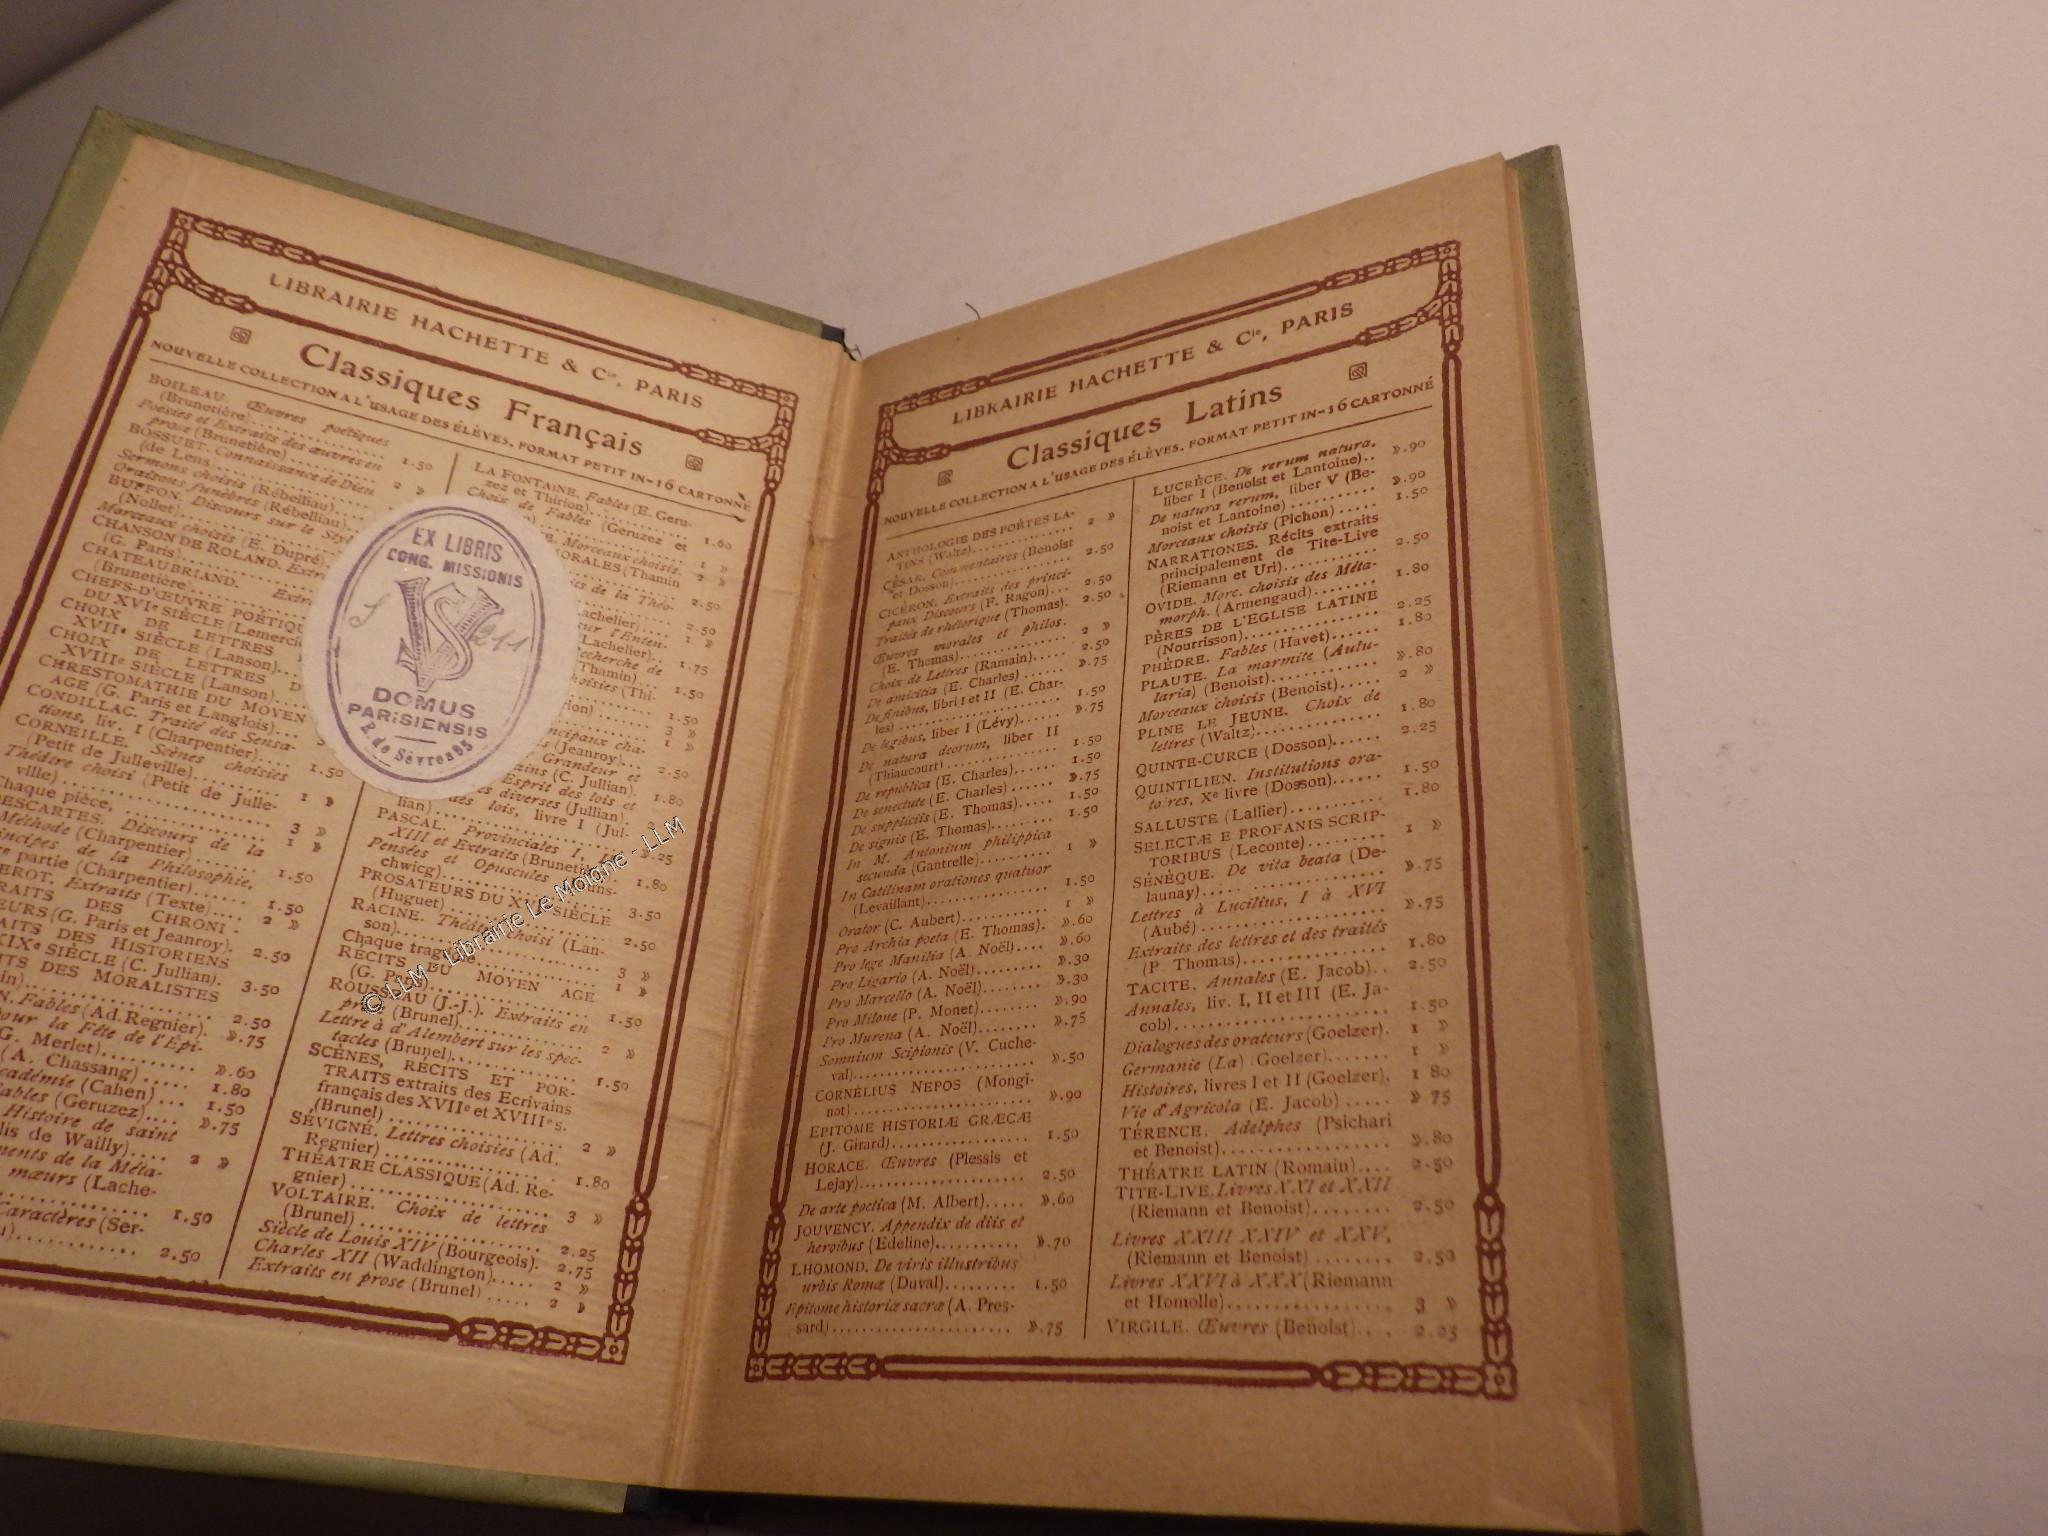 LIBRAIRIE HACHETTE & Cie, PARIS
Classiques Français
NOUVELLE COLLECTION A L'USAGE DES ÉLÈVES, FORMAT PETIT IN-16 CARTONNÉ
BOILEAU. Œuvres poétiques
(Brunetière) 1.50
Poésies et Extraits des œuvres en
prose (Brunetière) 2 »
BOSSUET. Connaissance de Dieu
(de Lens
Sermons choisis (Rébelliau)
Oraisons funèbres (Rébelliau)
BUFFON. Discours sur le Styl
(Nollet)
Morceaux choisis (E. Dupré)
CHANSON DE ROLAND. Extr
(G. Paris)
CHATEAUBRIAND. Extr
(Brunetière)
CHEFS-D'ŒUVRE POÉTIQU
DU XVIe SIÈCLE (Lemerci
CHOIX DE LETTRES
XVIIe SIÈCLE (Lanson)
CHOIX DE LETTRES D
XVIIIe SIÈCLE (Lanson)
CHRESTOMATHIE DU MOYEN
AGE (G. Paris et Langlois)
CONDILLAC. Traité des Sensa-
tions, liv. I (Charpentier) 1.50
CORNEILLE. Scènes choisies
(Petit de Julleville) 1 »
Théâtre choisi (Petit de Julle-
ville) 3 »
Chaque pièce, 1 »
DESCARTES. Discours de la
Méthode (Charpentier) 1.50
incipes de la Philosophie,
re partie (Charpentier) 1.50
EROT. Extraits (Texte) 2 »
RAITS DES CHRONI-
EURS (G. Paris et Jeanroy). 2.50
AITS DES HISTORIENS
XIXe SIÈCLE (C. Jullian). 3.50
TS DES MORALISTES
in) 2.50
N. Fables (Ad. Regnier). ».75
our la Fête de l'Épi-
G. Merlet) ».60
(A. Chassang) 1.80
cadémie (Cahen) 1.50
ables (Geruzez) ».75
Histoire de saint
lis de Wailly) 2 »
ments de la Méta-
mœurs (Lache-
1.50
Caractères (Ser-
2.50
LA FONTAINE. Fables (E. Geru-
zez et Thirion) 1.60
Choix de Fables (Geruzez et
1 »
Morceaux choisis.
2 »
ORALES (Thamin
2.50
is de la Théo-
achelier) 2.50
1 »
ur l'Enten-
Lachelier) 1.75
echerche de
Thamin) 1.50
hoisies (Thi-
1.50
rion) 3 »
ncipaux cha-
1 »
s (Jeanroy) 2.50
Grandeur et
ains (C. Jullian). 1.80
Esprit des lois et
es diverses (Jullian).
des lois, livre I (Jul-
lian) ».25
PASCAL. Provinciales I,
XIII et Extraits (Brunetière). 1.80
Pensées et Opuscules
chwicg) 3.50
PROSATEURS DU SIÈCLE
(Huguet) 2.50
RACINE. Théâtre choisi (Lan-
son) 3 »
Chaque tragédie 1 »
RÉCITS DU MOYEN AGE
(G. Paris) 1.50
ROUSSEAU (J.-J.). Extraits en
prose (Brunel) 2 »
Lettre à d'Alembert sur les spec-
tacles (Brunel) 1.50
SCÈNES, RÉCITS ET POR-
TRAITS extraits des Écrivains
français des XVIIe et XVIIIe s.
(Brunel) 2 »
SÉVIGNÉ. Lettres choisies (Ad.
Regnier) 1.80
THÉATRE CLASSIQUE (Ad. Re-
gnier) 3 »
VOLTAIRE. Choix de lettres
(Brunel) 2.25
Siècle de Louis XIV (Bourgeois). 2.75
Charles XII (Waddington) 2 »
Extraits en prose (Brunel) 2 »
EX LIBRIS
CONG. MISSIONIS
VS
DOMUS
PARISIENSIS
R. de Sèvres 95
© LLM - Librairie Le Moigne - LLM
LIBRAIRIE HACHETTE & Cie, PARIS
Classiques Latins
NOUVELLE COLLECTION A L'USAGE DES ÉLÈVES, FORMAT PETIT IN-16 CARTONNÉ
ANTHOLOGIE DES POÈTES LA-
TINS (Waltz) 2 »
CÉSAR. Commentaires (Benoist
et Dosson) 2.50
CICÉRON. Extraits des princi-
paux Discours (F. Ragon) 2.50
Traités de rhétorique (Thomas). 2.50
Œuvres morales et philos.
(E. Thomas) 2 »
Choix de Lettres (Ramain) 2.50
De amicitia (E. Charles) ».75
De finibus, libri I et II (E. Char-
les) 1.50
De legibus, liber I (Lévy) ».75
De natura deorum, liber II
(Thiaucourt) 1.50
De republica (E. Charles) 1.50
De senectute (E. Charles) ».75
De suppliciis (E. Thomas) 1.50
De signis (E. Thomas) 1.50
In M. Antonium philippica
secunda (Gantrelle) 1 »
In Catilinam orationes quatuor
(Levaillant) 1.50
Orator (C. Aubert) 1 »
Pro Archia poeta (E. Thomas). ».60
Pro lege Manilia (A. Noël) ».60
Pro Ligario (A. Noël) ».30
Pro Marcello (A. Noël) ».30
Pro Milone (P. Monet) ».90
Pro Murena (A. Noël) ».75
Somnium Scipionis (V. Cuche-
val) ».50
CORNÉLIUS NEPOS (Mongi-
not) ».90
EPITOME HISTORIÆ GRÆCÆ
(J. Girard) 1.50
HORACE. Œuvres (Plessis et
Lejay) 2.50
De arte poetica (M. Albert) ».60
JOUVENCY. Appendix de diis et
heroibus (Edeline) ».70
LHOMOND. De viris illustribus
urbis Romæ (Duval) 1.50
Epitome historiæ sacræ (A. Pres-
sard) ».75
LUCRÈCE. De rerum natura,
liber I (Benoist et Lantoine) ».90
De natura rerum, liber V (Be-
noist et Lantoine) ».90
Morceaux choisis (Pichon) 1.50
NARRATIONES. Récits extraits
principalement de Tite-Live
(Riemann et Uri) 2.50
OVIDE. Morc. choisis des Méta-
morph. (Armengaud) 1.80
PÈRES DE L'EGLISE LATINE
(Nourrisson) 2.25
PHÈDRE. Fables (Havet) 1.80
PLAUTE. La marmite (Aulu-
laria) (Benoist) ».80
Morceaux choisis (Benoist) 2 »
PLINE LE JEUNE. Choix de
lettres (Waltz) 1.80
QUINTE-CURCE (Dosson) 2.25
QUINTILIEN. Institutions ora-
toires, Xe livre (Dosson) 1.50
SALLUSTE (Lallier) 1.80
SELECTÆ E PROFANIS SCRIP-
TORIBUS (Leconte) 1 »
SÉNÈQUE. De vita beata (De-
launay) ».75
Lettres à Lucilius, I à XVI
(Aubé) ».75
Extraits des lettres et des traités
(P Thomas) 1.80
TACITE. Annales (E. Jacob) 2.50
Annales, liv. I, II et III (E. Ja-
cob) 1.50
Dialogues des orateurs (Goelzer). 1 »
Germanie (La) (Goelzer) 1 »
Histoires, livres I et II (Goelzer). 1 80
Vie d'Agricola (E. Jacob) » 75
TÉRENCE. Adelphes (Psichari
et Benoist) ».80
THÉATRE LATIN (Romain) 2.50
TITE-LIVE. Livres XXI et XXII
(Riemann et Benoist) 2.50
Livres XXIII XXIV et XXV,
(Riemann et Benoist) 2.50
Livres XXVI à XXX (Riemann
et Homolle) 3 »
VIRGILE. Œuvres (Benoist) 2.25